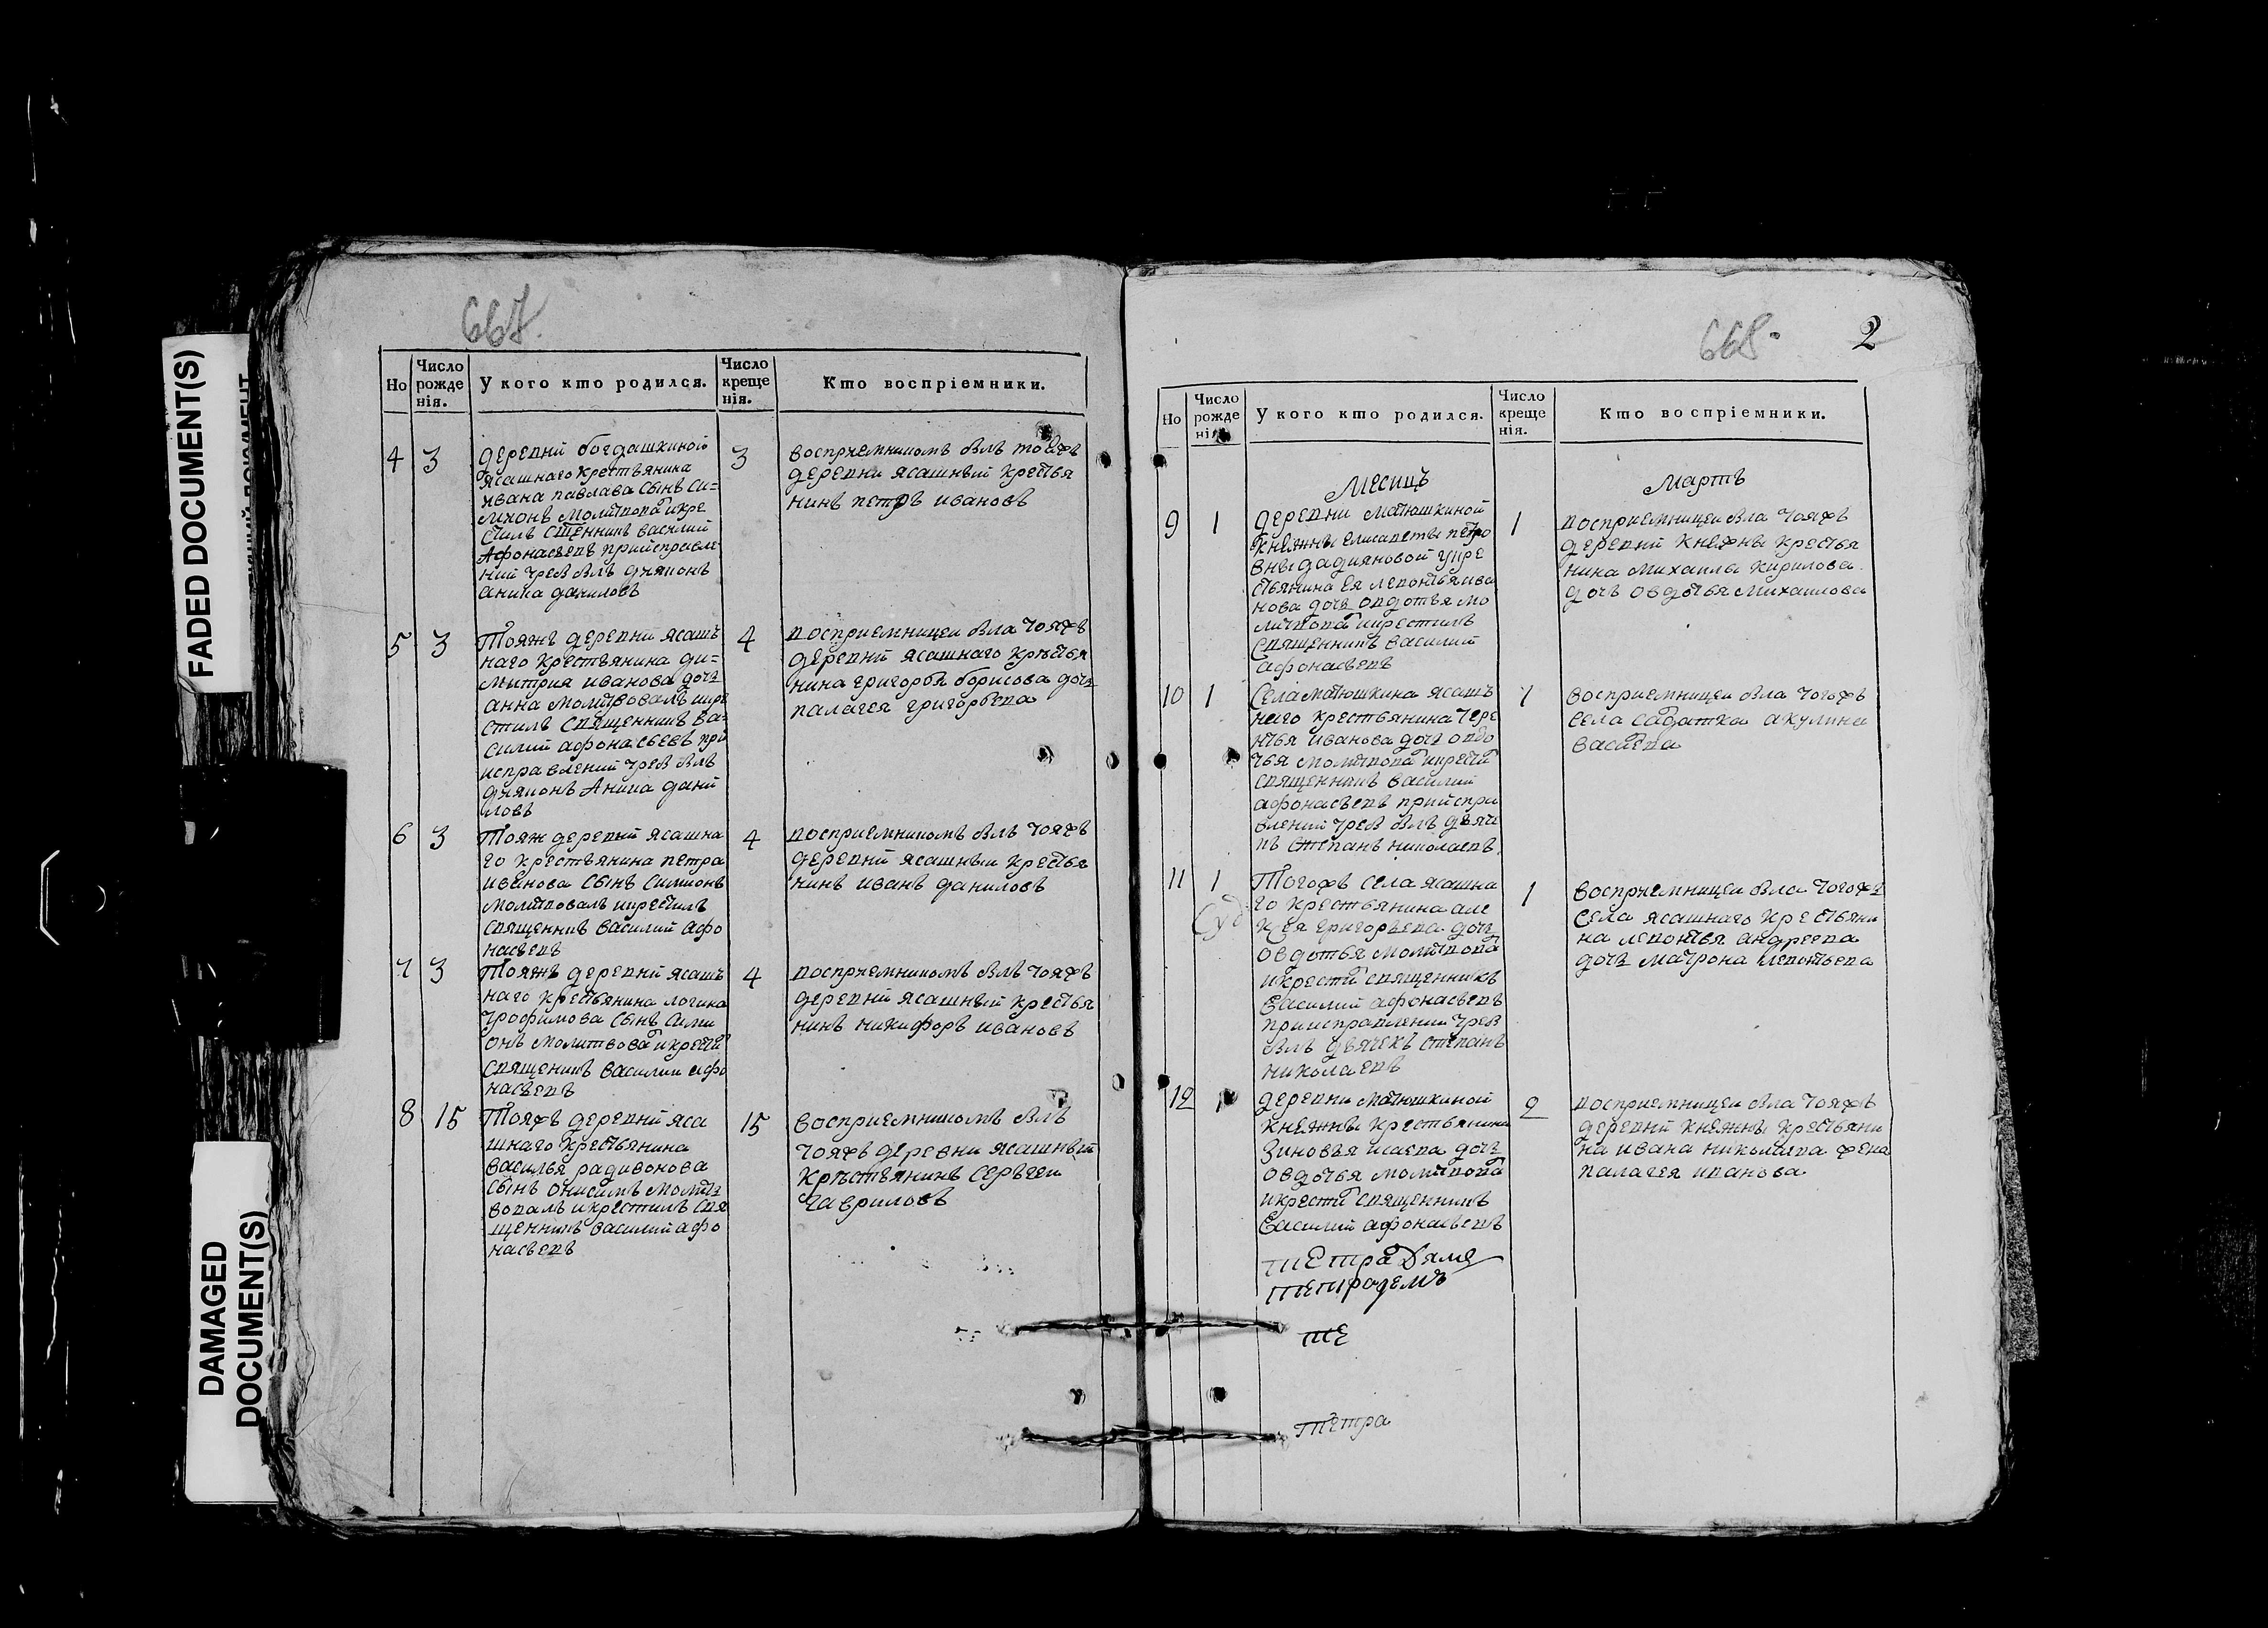 FADED DOCUMENT(S)
DAMAGED
DOCUMENT(S)
667.
Но
Число рожденія.
У кого кто родился.
Число крещенія.
Кто воспріемники.
4 3
деревни богдашкиной
ясашнаго крестьянина
ивана павлава сынъ си=
мионъ молитвова икре
стилъ сщенникъ василий
Афонасьевъ приисправле
нии треб былъ дияконъ
аника даниловъ
3
восприемникомъ былъ тояжъ
деревни ясашный крестья
нинъ петръ ивановъ
5 3
Тояжъ деревни ясашъ
наго крестьянина ди=
митрия иванова дочь
анна молитвовалъ икре
стилъ священникъ ва=
силий афонасьевъ при
исправлении треб былъ
дияконъ Аника дани
ловъ
4
восприемницеи была тояжъ
деревни ясашнаго крестья
нина григорья борисова дочь
палагея григорьева
6 3
Тояж деревни ясашна
го крестьянина петра
иванова сынъ симионъ
молитвовалъ икрестилъ
священникъ василий афо
насьевъ
4
восприемникомъ былъ тояжъ
деревни ясашныи крестья
нинъ иванъ даниловъ
7 3
Тояжъ деревни ясашъ
наго крестьянина логина
трофимова сынъ сими
онъ молитвова икрести
священикъ василии афо
насьевъ
4
восприемникомъ былъ тояжъ
деревни ясашный крестья
нинъ никифоръ ивановъ
8 15
Тояжъ деревни яса
шнаго крестьянина
василья радивонова
сынъ онисимъ молит
вовалъ икрестилъ свя
щенникъ василий афо
насьевъ
15
восприемникомъ былъ
тояжъ деревни ясашный
крестьянинъ сергеи
гавриловъ
668.
2
Но
Число рожденія.
У кого кто родился.
Число крещенія.
Кто воспріемники.
Месицъ
Мартъ
9 1
деревни матюшкиной
княжны елисаветы петро
вны дадияновой укре
стьянина ея леонтья ива
нова дочь овдотья мо
литвова икрестилъ
священникъ василий
афонасьевъ
1
восприемницеи была тояжъ
деревни княжны крестья
нина михаилы кирилова
дочь овдотья михаилова
10 1
Села матюшкина ясашъ
наго крестьянина тере
нтья иванова дочь овдо
тья молитвова икрести
священникъ василий
афонасьевъ приспри
влений треб былъ дьяче
къ степанъ николаевъ
1
восприемницеи была тогожъ
села солдатка акулина
васильева
11 1
Тогожъ села ясашна
го крестьянина але
ксея григорьева дочь
овдотья молитвова
икрести священникъ
василий афонасьевъ
приисправлении треб
былъ дьячекъ степанъ
николаевъ
1
восприемницеи была тогожъ
села ясашнаго крестьяни
на леонтья андреева
дочь матрона леонтьева
12 1
деревни матюшкиной
княжны крестьянина
зиновья исаева дочь
овдотья молитвова
икрести священникъ
василий афонасьевъ
2
восприемницеи была тояжъ
деревни княжны крестьяни
на ивана николаева жена
палагея иванова